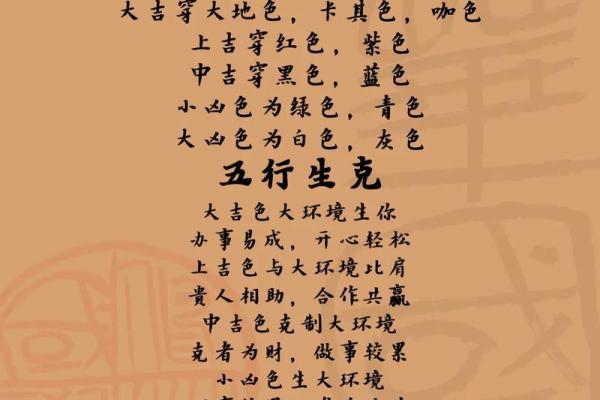 大吉穿大地色，卡其色，咖色
上吉穿红色，紫色
中吉穿黑色，蓝色
小凶色为绿色，青色
大凶色为白色，灰色
五行生克
大吉色大环境生你
办事易成，开心轻松
上吉色与大环境比肩
貴人相助，合作共赢
中吉色克制大环境
克者为财，做事较累
小凶色生大环境